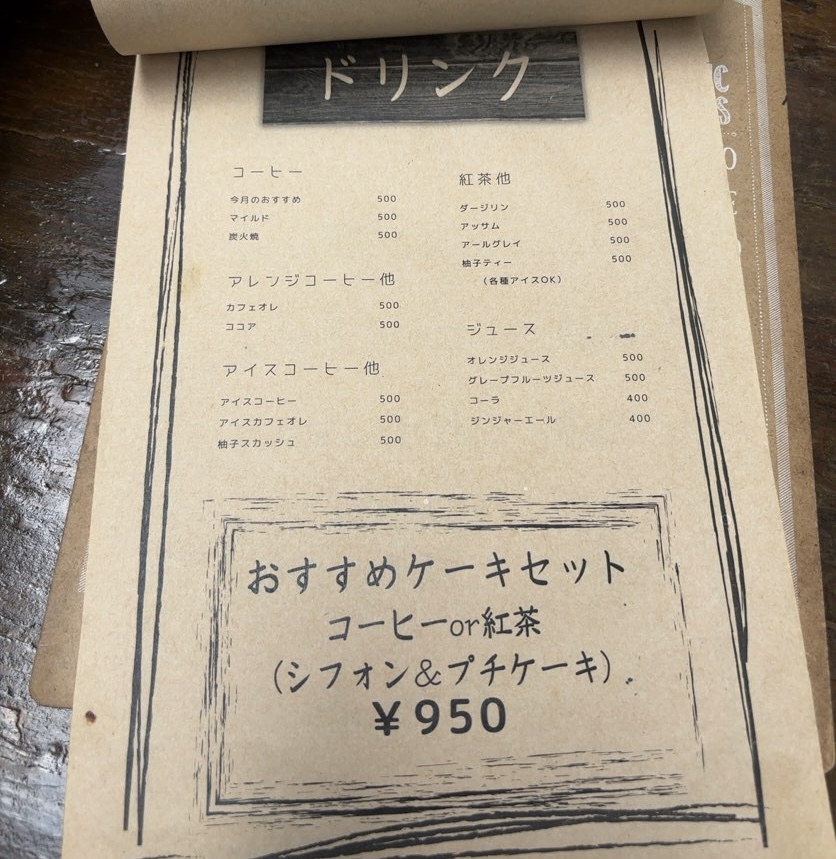 ドリンク
コーヒー
今月のおすすめ 500
マイルド 500
炭火焼 500
アレンジコーヒー他
カフェオレ 500
ココア 500
アイスコーヒー他
アイスコーヒー 500
アイスカフェオレ 500
柚子スカッシュ 500
紅茶他
ダージリン 500
アッサム 500
アールグレイ 500
柚子ティー 500
(各種アイスOK)
ジュース
オレンジジュース 500
グレープフルーツジュース 500
コーラ 400
ジンジャーエール 400
おすすめケーキセット
コーヒーor紅茶
(シフォン&プチケーキ)
¥950